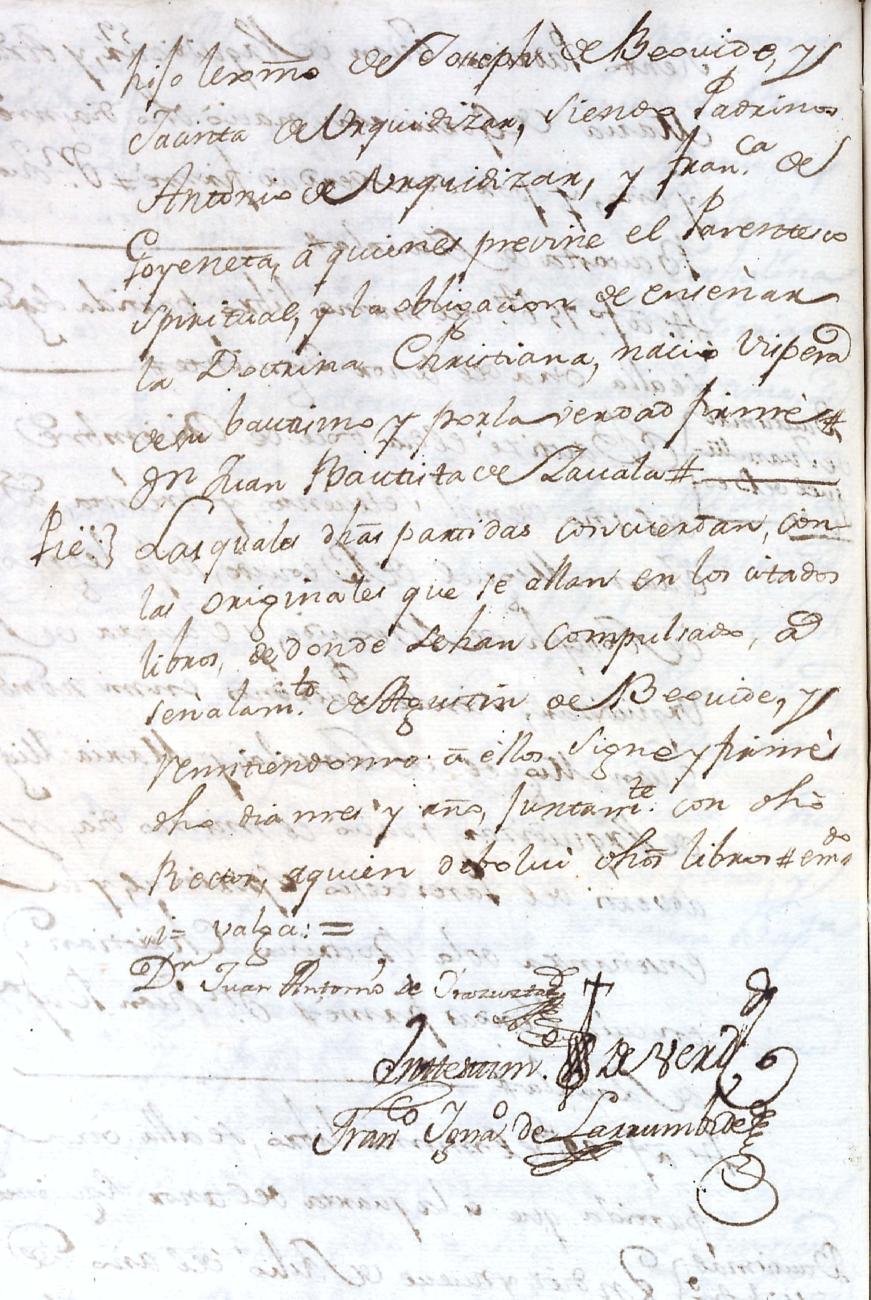 hijo lexmo de Joseph de Beovide, y
Jacinta de Urquidizar, siendo Padrinos
Antonio de Urquidizar, y Fran.ca de
Goyeneta, â quienes previne el Parentesco
spiritual, y la obligacion de enseñar
la Doctrina Christiana, nacio Vispera
de su bautismo, y por la verdad firmè #
Dn Juan Bautista de Zavala #
Piè: } Las quales dhãs partidas concuerdan, con
las originales que se allan en los citados
libros, de donde se han compulsado, a
señalam.to de Agustin de Beovide, y
remitiendome â ellos signè, y firmè
dho dia mes y año, juntam.te con dho
Rector, aquien debolui dhos libros # em.do
i= valga: =
Dn Juan Antonio de
In testim. de verd
Fran.co Igna.o de Larrumbide